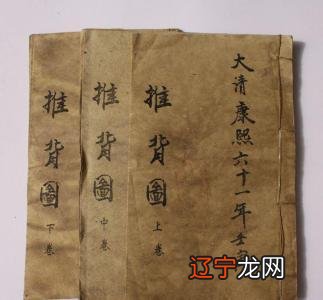 大清康熙六十一年壬寅
推背圖
上卷
推背圖
中卷
推背圖
下卷
辽宁龙网